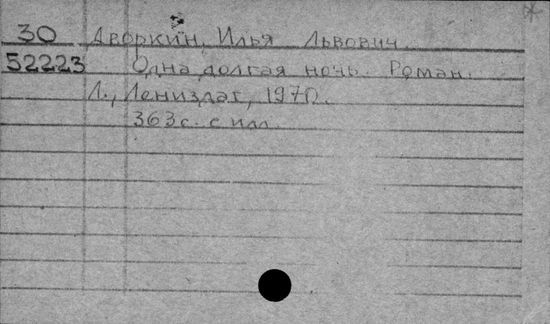 30 Дворкин, Илья Львович.
52223 Одна долгая ночь. Роман.
Л., Лениздат, 1970.
363с. с илл.